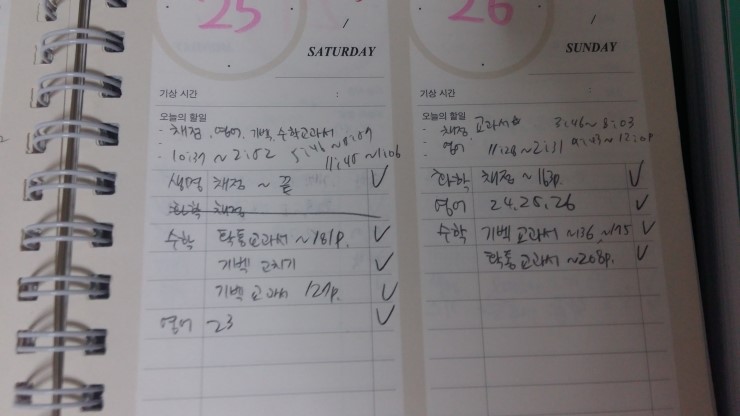 25
/
SATURDAY
기상 시간 :
오늘의 할일
- 채점, 영어, 기벡, 수학교과서
- 10:37 ~ 2:02
11:40 ~ 1:06
생명 채점 ~ 끝 ✓
화학 채점
수학 확통교과서 ~181p. ✓
기벡 고치기 ✓
기벡 교과서 127p. ✓
영어 23 ✓
26
/
SUNDAY
기상 시간 :
오늘의 할일
- 채점, 교과서 3:46 ~ 8:03
- 영어 11:28 ~ 2:11
화학 채점 ~ 163p. ✓
영어 24. 25. 26 ✓
수학 기벡 교과서 ~136 ~175 ✓
확통 교과서 ~208p. ✓